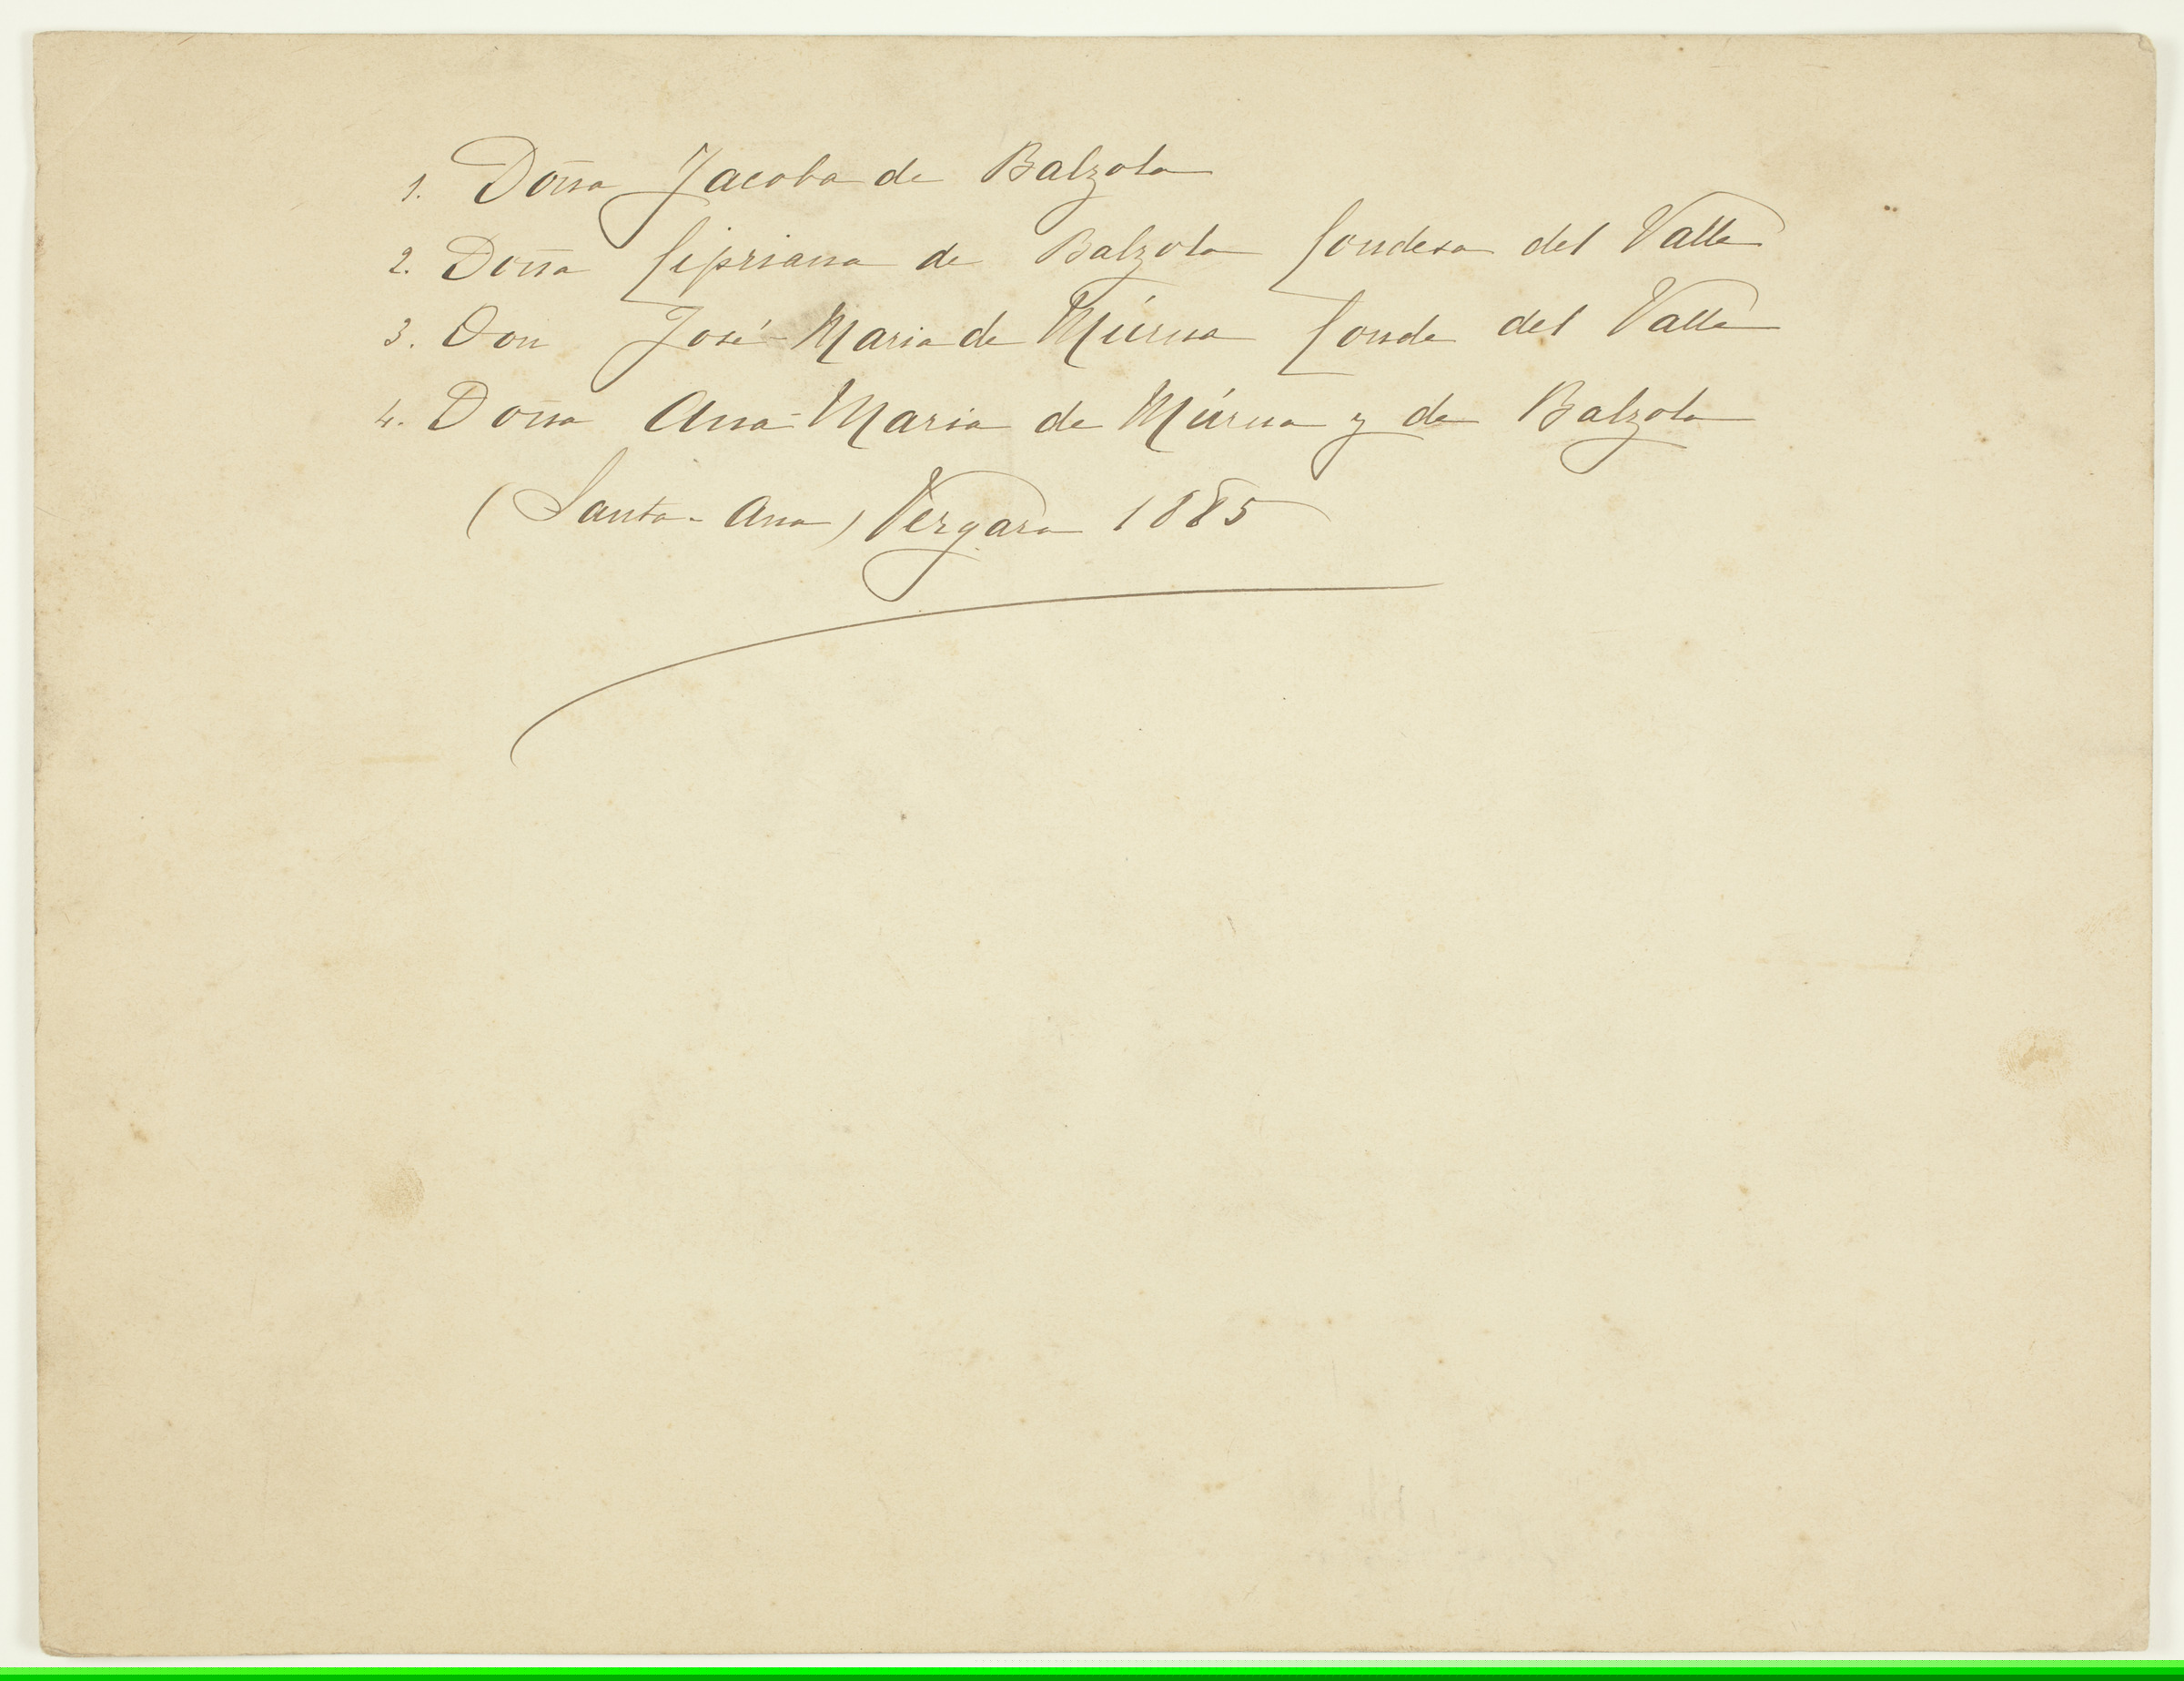 1. Doña Jacoba de Balzola
2. Doña Cipriana de Balzola Condesa del Valle
3. Don José-Maria de Múrua Conde del Valle
4. Doña Ana-Maria de Múrua y de Balzola
(Santa-Ana) Vergara 1885